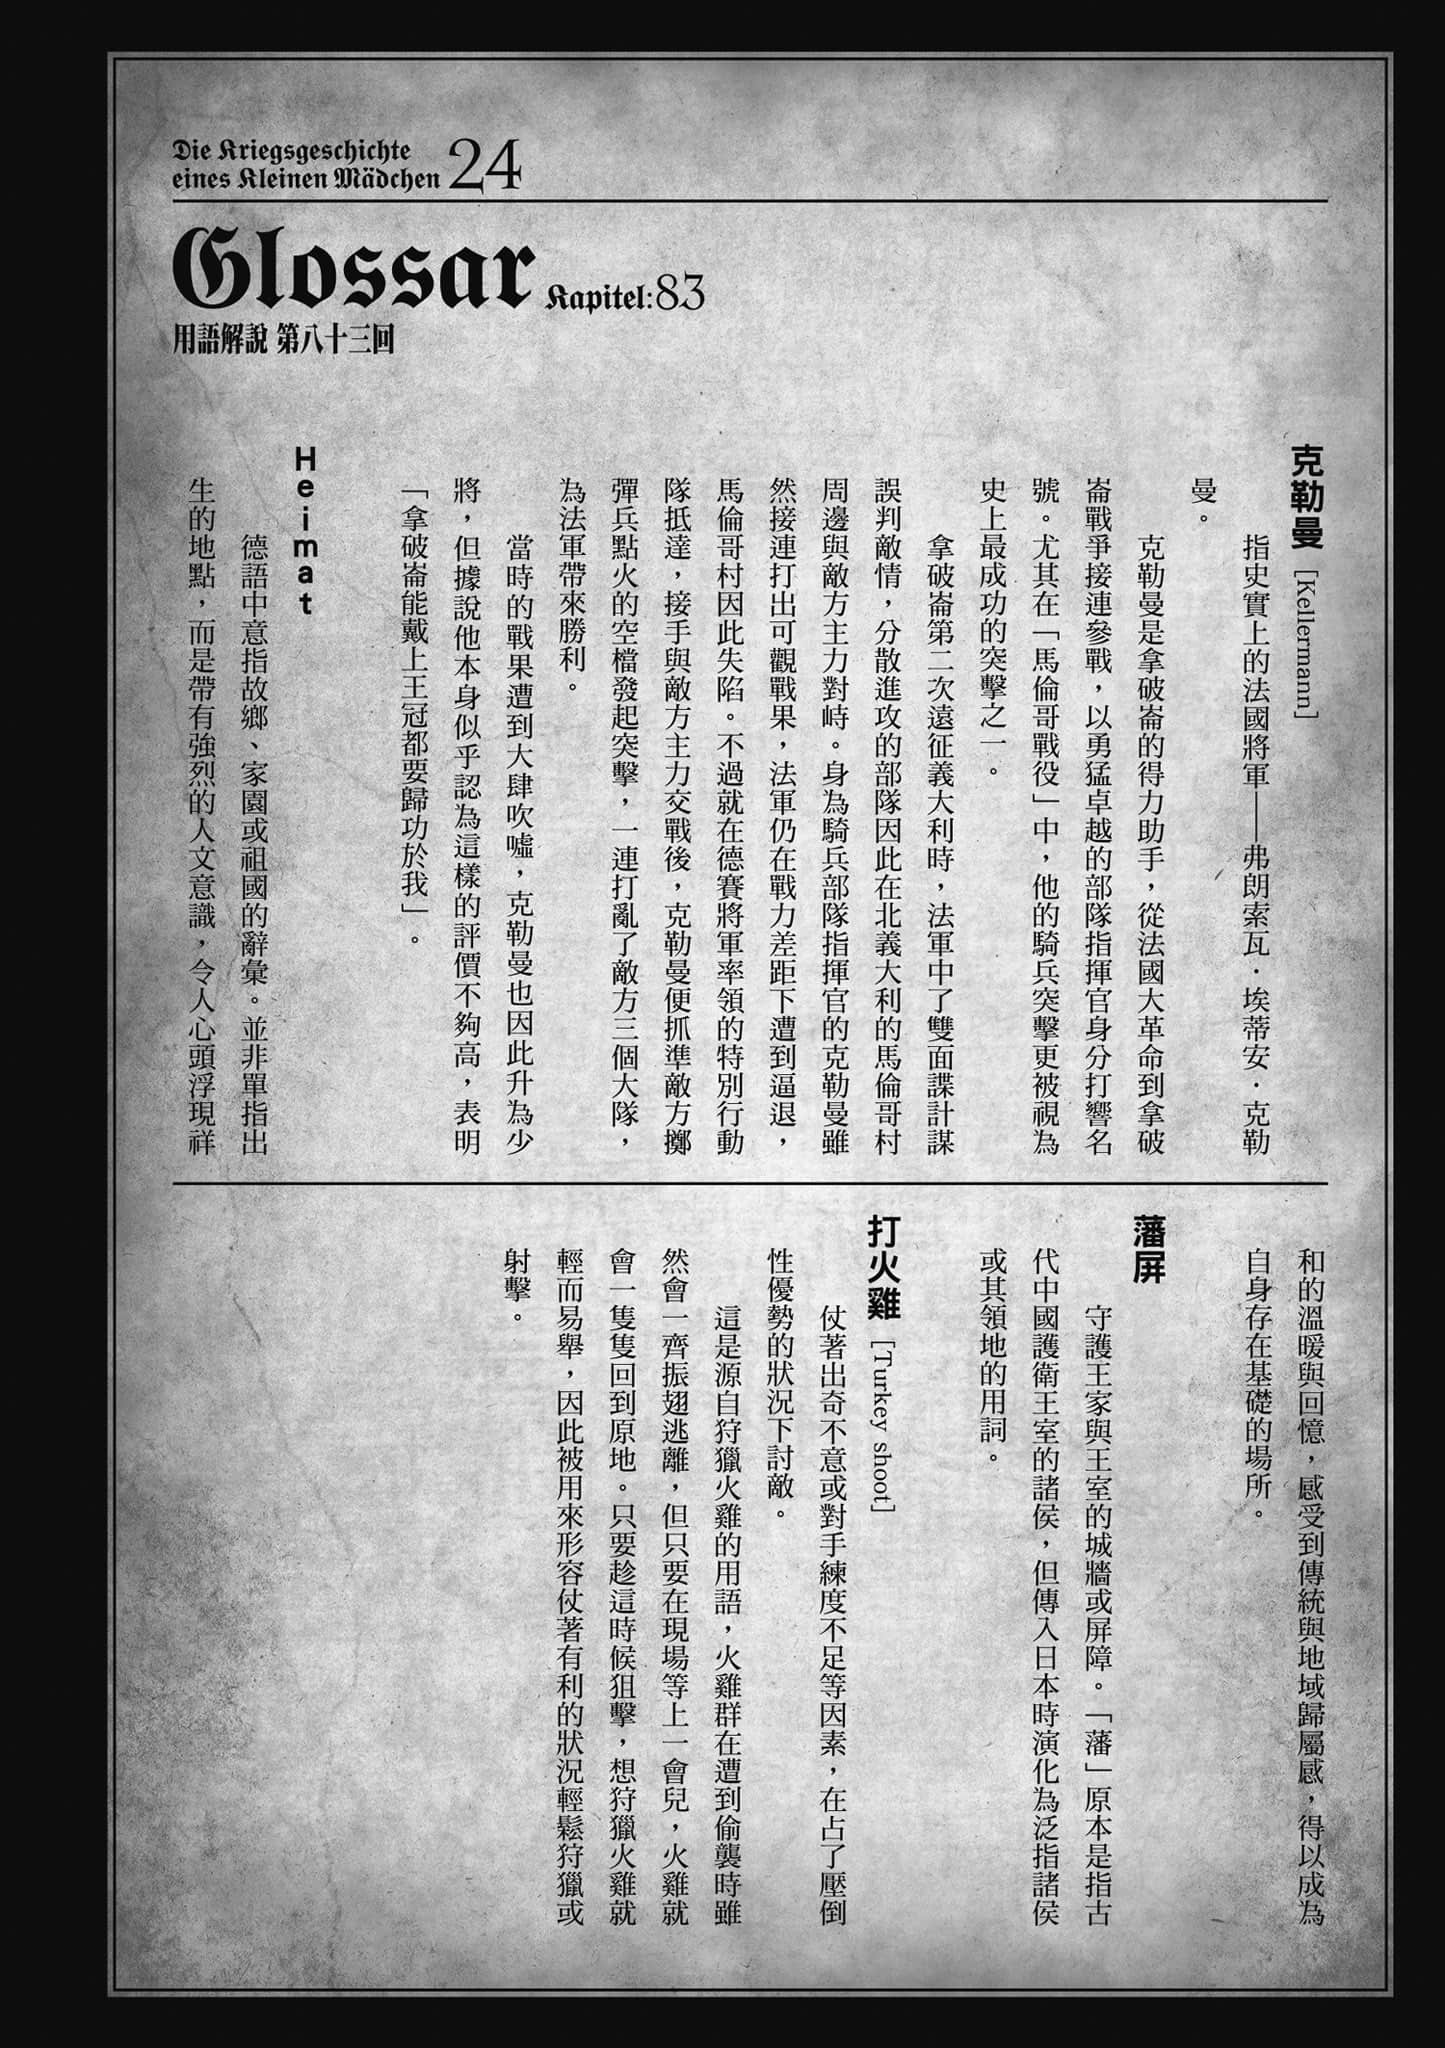 Die Kriegsgeschichte
eines Kleinen Mädchen 24
Glossar Kapitel:83
用語解說 第八十三回
克勒曼 [Kellermann]
指史實上的法國將軍——弗朗索瓦·埃蒂安·克勒
曼。
克勒曼是拿破崙的得力助手，從法國大革命到拿破
崙戰爭接連參戰，以勇猛卓越的部隊指揮官身分打響名
號。尤其在「馬倫哥戰役」中，他的騎兵突擊更被視為
史上最成功的突擊之一。
拿破崙第二次遠征義大利時，法軍中了雙面諜計謀
誤判敵情，分散進攻的部隊因此在北義大利的馬倫哥村
周邊與敵方主力對峙。身為騎兵部隊指揮官的克勒曼雖
然接連打出可觀戰果，法軍仍在戰力差距下遭到逼退，
馬倫哥村因此失陷。不過就在德賽將軍率領的特別行動
隊抵達，接手與敵方主力交戰後，克勒曼便抓準敵方擲
彈兵點火的空檔發起突擊，一連打亂了敵方三個大隊，
為法軍帶來勝利。
當時的戰果遭到大肆吹噓，克勒曼也因此升為少
將，但據說他本身似乎認為這樣的評價不夠高，表明
「拿破崙能戴上王冠都要歸功於我」。
Heimat
德語中意指故鄉、家園或祖國的辭彙。並非單指出
生的地點，而是帶有強烈的人文意識，令人心頭浮現祥
和的溫暖與回憶，感受到傳統與地域歸屬感，得以成為
自身存在基礎的場所。
藩屏
守護王家與王室的城牆或屏障。「藩」原本是指古
代中國護衛王室的諸侯，但傳入日本時演化為泛指諸侯
或其領地的用詞。
打火雞 [Turkey shoot]
仗著出奇不意或對手練度不足等因素，在占了壓倒
性優勢的狀況下討敵。
這是源自狩獵火雞的用語，火雞群在遭到偷襲時雖
然會一齊振翅逃離，但只要在現場等上一會兒，火雞就
會一隻隻回到原地。只要趁這時候狙擊，想狩獵火雞就
輕而易舉，因此被用來形容仗著有利的狀況輕鬆狩獵或
射擊。